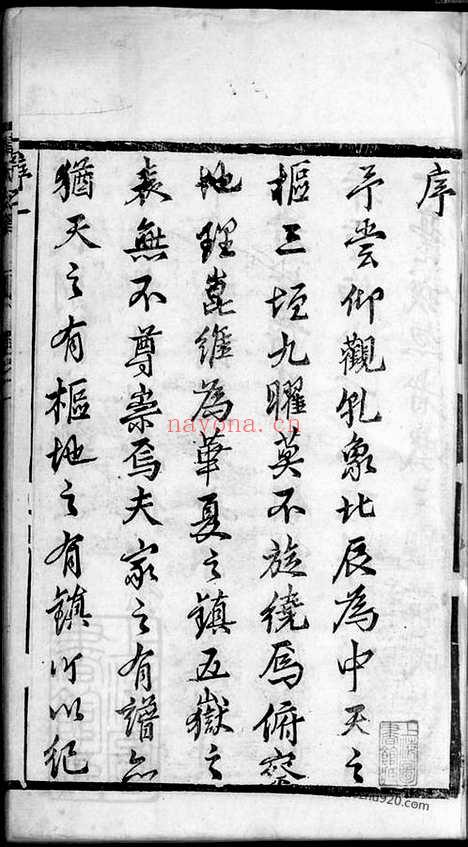 序
予嘗仰觀乳象北辰為中天之
樞三垣九曜莫不旋繞焉俯察
地理崑維為華夏之鎮五嶽之
表無不尊崇焉夫家之有譜亦
猶天之有樞地之有鎮所以紀
nayona.cn